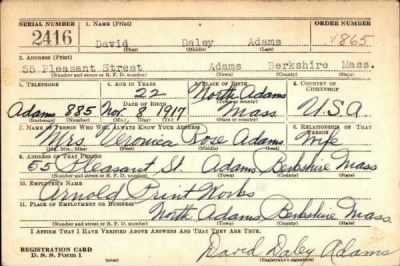 SERIAL NUMBER 1. NAME (Print) ORDER NUMBER
2416 David Daley Adams 1865
(First) (Middle) (Last)
2. ADDRESS (Print)
55 Pleasant Street Adams Berkshire Mass.
(Number and street or R. F. D. number) (Town) (County) (State)
3. TELEPHONE 4. AGE IN YEARS 5. PLACE OF BIRTH 6. COUNTRY OF CITIZENSHIP
22 North Adams
DATE OF BIRTH (Town or county)
Adams 885 Nov. 8 1917 Mass. U.S.A.
(Exchange) (Number) (Mo.) (Day) (Yr.) (State or country)
7. NAME OF PERSON WHO WILL ALWAYS KNOW YOUR ADDRESS 8. RELATIONSHIP OF THAT PERSON
Mrs. Veronica Rose Adams Wife
(Mr., Mrs., Miss) (First) (Middle) (Last)
9. ADDRESS OF THAT PERSON
55 Pleasant St. Adams Berkshire Mass
(Number and street or R. F. D. number) (Town) (County) (State)
10. EMPLOYER'S NAME
Arnold Print Works
11. PLACE OF EMPLOYMENT OR BUSINESS
North Adams, Berkshire Mass
(Number and street or R. F. D. number) (Town) (County) (State)
I AFFIRM THAT I HAVE VERIFIED ABOVE ANSWERS AND THAT THEY ARE TRUE.
REGISTRATION CARD
D. S. S. Form 1 David Daley Adams
(Registrant's signature)